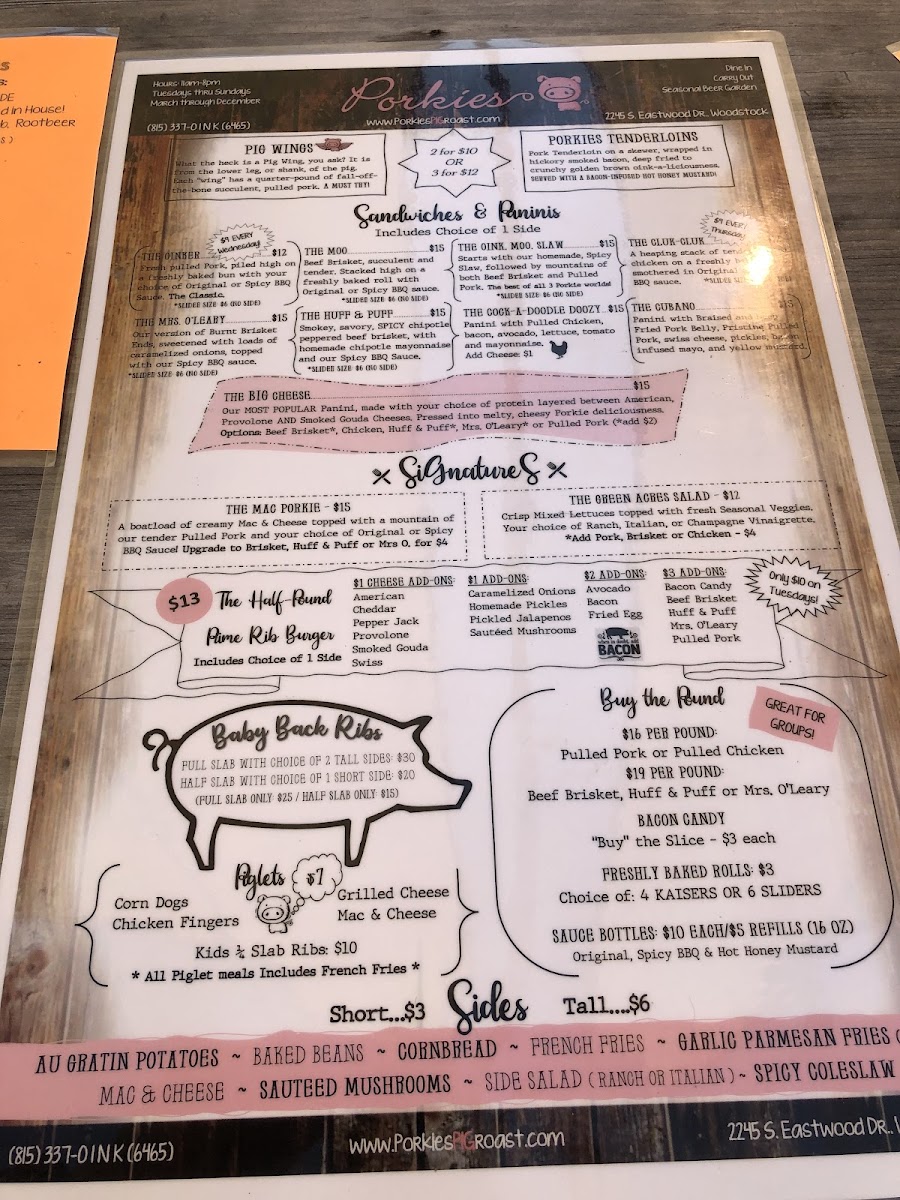 S
S:
DE
d in House!
b, Rootbeer
Hours: 11am-8pm
Tuesdays thru Sundays
March through December
(815) 337-OINK (6465)
Porkies
www.PorkiesPIGRoast.com
Dine In
Carry Out
Seasonal Beer Garden
2245 S. Eastwood Dr., Woodstock
PIG WINGS
What the heck is a Pig Wing, you ask? It is
from the lower leg, or shank, of the pig.
Each "wing" has a quarter-pound of fall-off-
the-bone succulent, pulled pork. A MUST TRY!
2 for $10
OR
3 for $12
PORKIES TENDERLOINS
Pork Tenderloin on a skewer, wrapped in
hickory smoked bacon, deep fried to
crunchy golden brown oink-a-liciousness.
SERVED WITH A BACON-INFUSED HOT HONEY MUSTARD!
Sandwiches & Paninis
Includes Choice of 1 Side
$9 EVERY
Wednesday!
THE OINKER $12
Fresh pulled Pork, piled high on
a freshly baked bun with your
choice of Original or Spicy BBQ
Sauce. The Classic.
*SLIDER SIZE: $6 (NO SIDE)
THE MOO $15
Beef Brisket, succulent and
tender. Stacked high on a
freshly baked roll with
Original or Spicy BBQ sauce.
*SLIDER SIZE: $6 (NO SIDE)
THE OINK, MOO, SLAW $15
Starts with our homemade, Spicy
Slaw, followed by mountains of
both Beef Brisket and Pulled
Pork. The best of all 3 Porkie worlds!
*SLIDER SIZE: $6 (NO SIDE)
$9 EVERY
Thursday!
THE CLUK-CLUK
A heaping stack of
chicken on a freshly
smothered in Original
BBQ sauce.
THE MRS. O'LEARY $15
Our version of Burnt Brisket
Ends, sweetened with loads of
caramelized onions, topped
with our Spicy BBQ sauce.
*SLIDER SIZE: $6 (NO SIDE)
THE HUFF & PUFF $15
Smokey, savory, SPICY chipotle
peppered beef brisket, with
homemade chipotle mayonnaise
and our Spicy BBQ Sauce.
*SLIDER SIZE: $6 (NO SIDE)
THE COCK-A-DOODLE DOOZY $15
Panini with Pulled Chicken,
bacon, avocado, lettuce, tomato
and mayonnaise.
Add Cheese: $1
THE CUBANO
Panini with Braised and
Fried Pork Belly, Pristine Pulled
Pork, swiss cheese, pickles,
infused mayo, and yellow mustard.
THE BIG CHEESE $15
Our MOST POPULAR Panini, made with your choice of protein layered between American,
Provolone AND Smoked Gouda Cheeses. Pressed into melty, cheesy Porkie deliciousness.
Options: Beef Brisket*, Chicken, Huff & Puff*, Mrs. O'Leary* or Pulled Pork (*add $2)
SiGnatureS
THE MAC PORKIE - $15
A boatload of creamy Mac & Cheese topped with a mountain of
our tender Pulled Pork and your choice of Original or Spicy
BBQ Sauce! Upgrade to Brisket, Huff & Puff or Mrs O. for $4
THE GREEN ACRES SALAD - $12
Crisp Mixed Lettuces topped with fresh Seasonal Veggies.
Your choice of Ranch, Italian, or Champagne Vinaigrette.
*Add Pork, Brisket or Chicken - $4
$13
The Half-Pound
Prime Rib Burger
Includes Choice of 1 Side
$1 CHEESE ADD-ONS:
American
Cheddar
Pepper Jack
Provolone
Smoked Gouda
Swiss
$1 ADD-ONS:
Caramelized Onions
Homemade Pickles
Pickled Jalapenos
Sautéed Mushrooms
$2 ADD-ONS:
Avocado
Bacon
Fried Egg
when in doubt, add
BACON
$3 ADD-ONS:
Bacon Candy
Beef Brisket
Huff & Puff
Mrs. O'Leary
Pulled Pork
Only $10 on
Tuesdays!
Baby Back Ribs
FULL SLAB WITH CHOICE OF 2 TALL SIDES: $30
HALF SLAB WITH CHOICE OF 1 SHORT SIDE: $20
(FULL SLAB ONLY: $25 / HALF SLAB ONLY: $15)
Piglets
$7
Corn Dogs
Chicken Fingers
Grilled Cheese
Mac & Cheese
Kids ¼ Slab Ribs: $10
* All Piglet meals Includes French Fries *
Buy the Pound
GREAT FOR
GROUPS!
$16 PER POUND:
Pulled Pork or Pulled Chicken
$19 PER POUND:
Beef Brisket, Huff & Puff or Mrs. O'Leary
BACON CANDY
"Buy" the Slice - $3 each
FRESHLY BAKED ROLLS: $3
Choice of: 4 KAISERS OR 6 SLIDERS
SAUCE BOTTLES: $10 EACH/$5 REFILLS (16 OZ)
Original, Spicy BBQ & Hot Honey Mustard
Short...$3 Sides Tall....$6
AU GRATIN POTATOES ~ BAKED BEANS ~ CORNBREAD ~ FRENCH FRIES ~ GARLIC PARMESAN FRIES (
MAC & CHEESE ~ SAUTEED MUSHROOMS ~ SIDE SALAD ( RANCH OR ITALIAN ) ~ SPICY COLESLAW
(815) 337-OINK (6465)
www.PorkiesPIGRoast.com
2245 S. Eastwood Dr.,